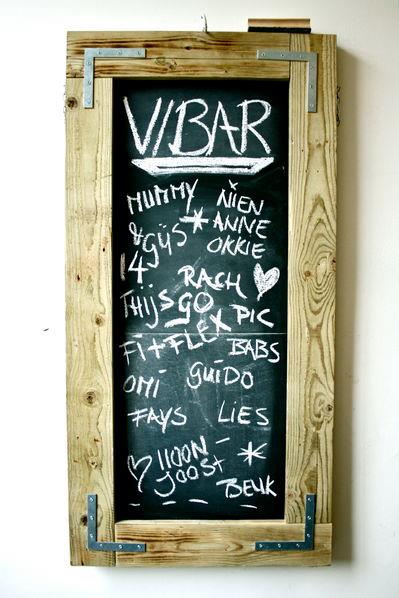 VIBAR
MUMMY NIEN
&GIJS * ANNE
OKKIE
4 RACH
THIJS GO PIC
Fi+FLEX BABS
OMI GUIDO
FAYS LIES
JOOST *
BEUK